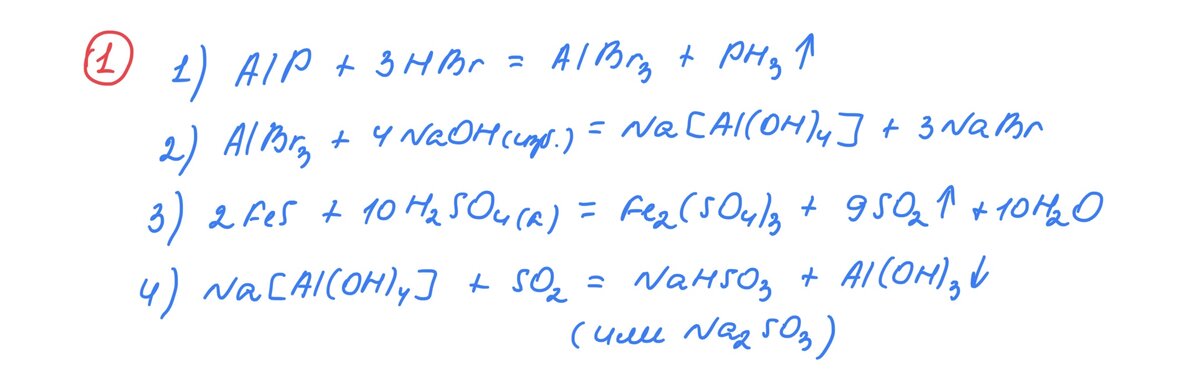 1 1) AlP + 3HBr = AlBr₃ + PH₃↑
2) AlBr₃ + 4NaOH(изб.) = Na[Al(OH)₄] + 3NaBr
3) 2FeS + 10H₂SO₄(к) = Fe₂(SO₄)₃ + 9SO₂↑ + 10H₂O
4) Na[Al(OH)₄] + SO₂ = NaHSO₃ + Al(OH)₃↓
(или Na₂SO₃)